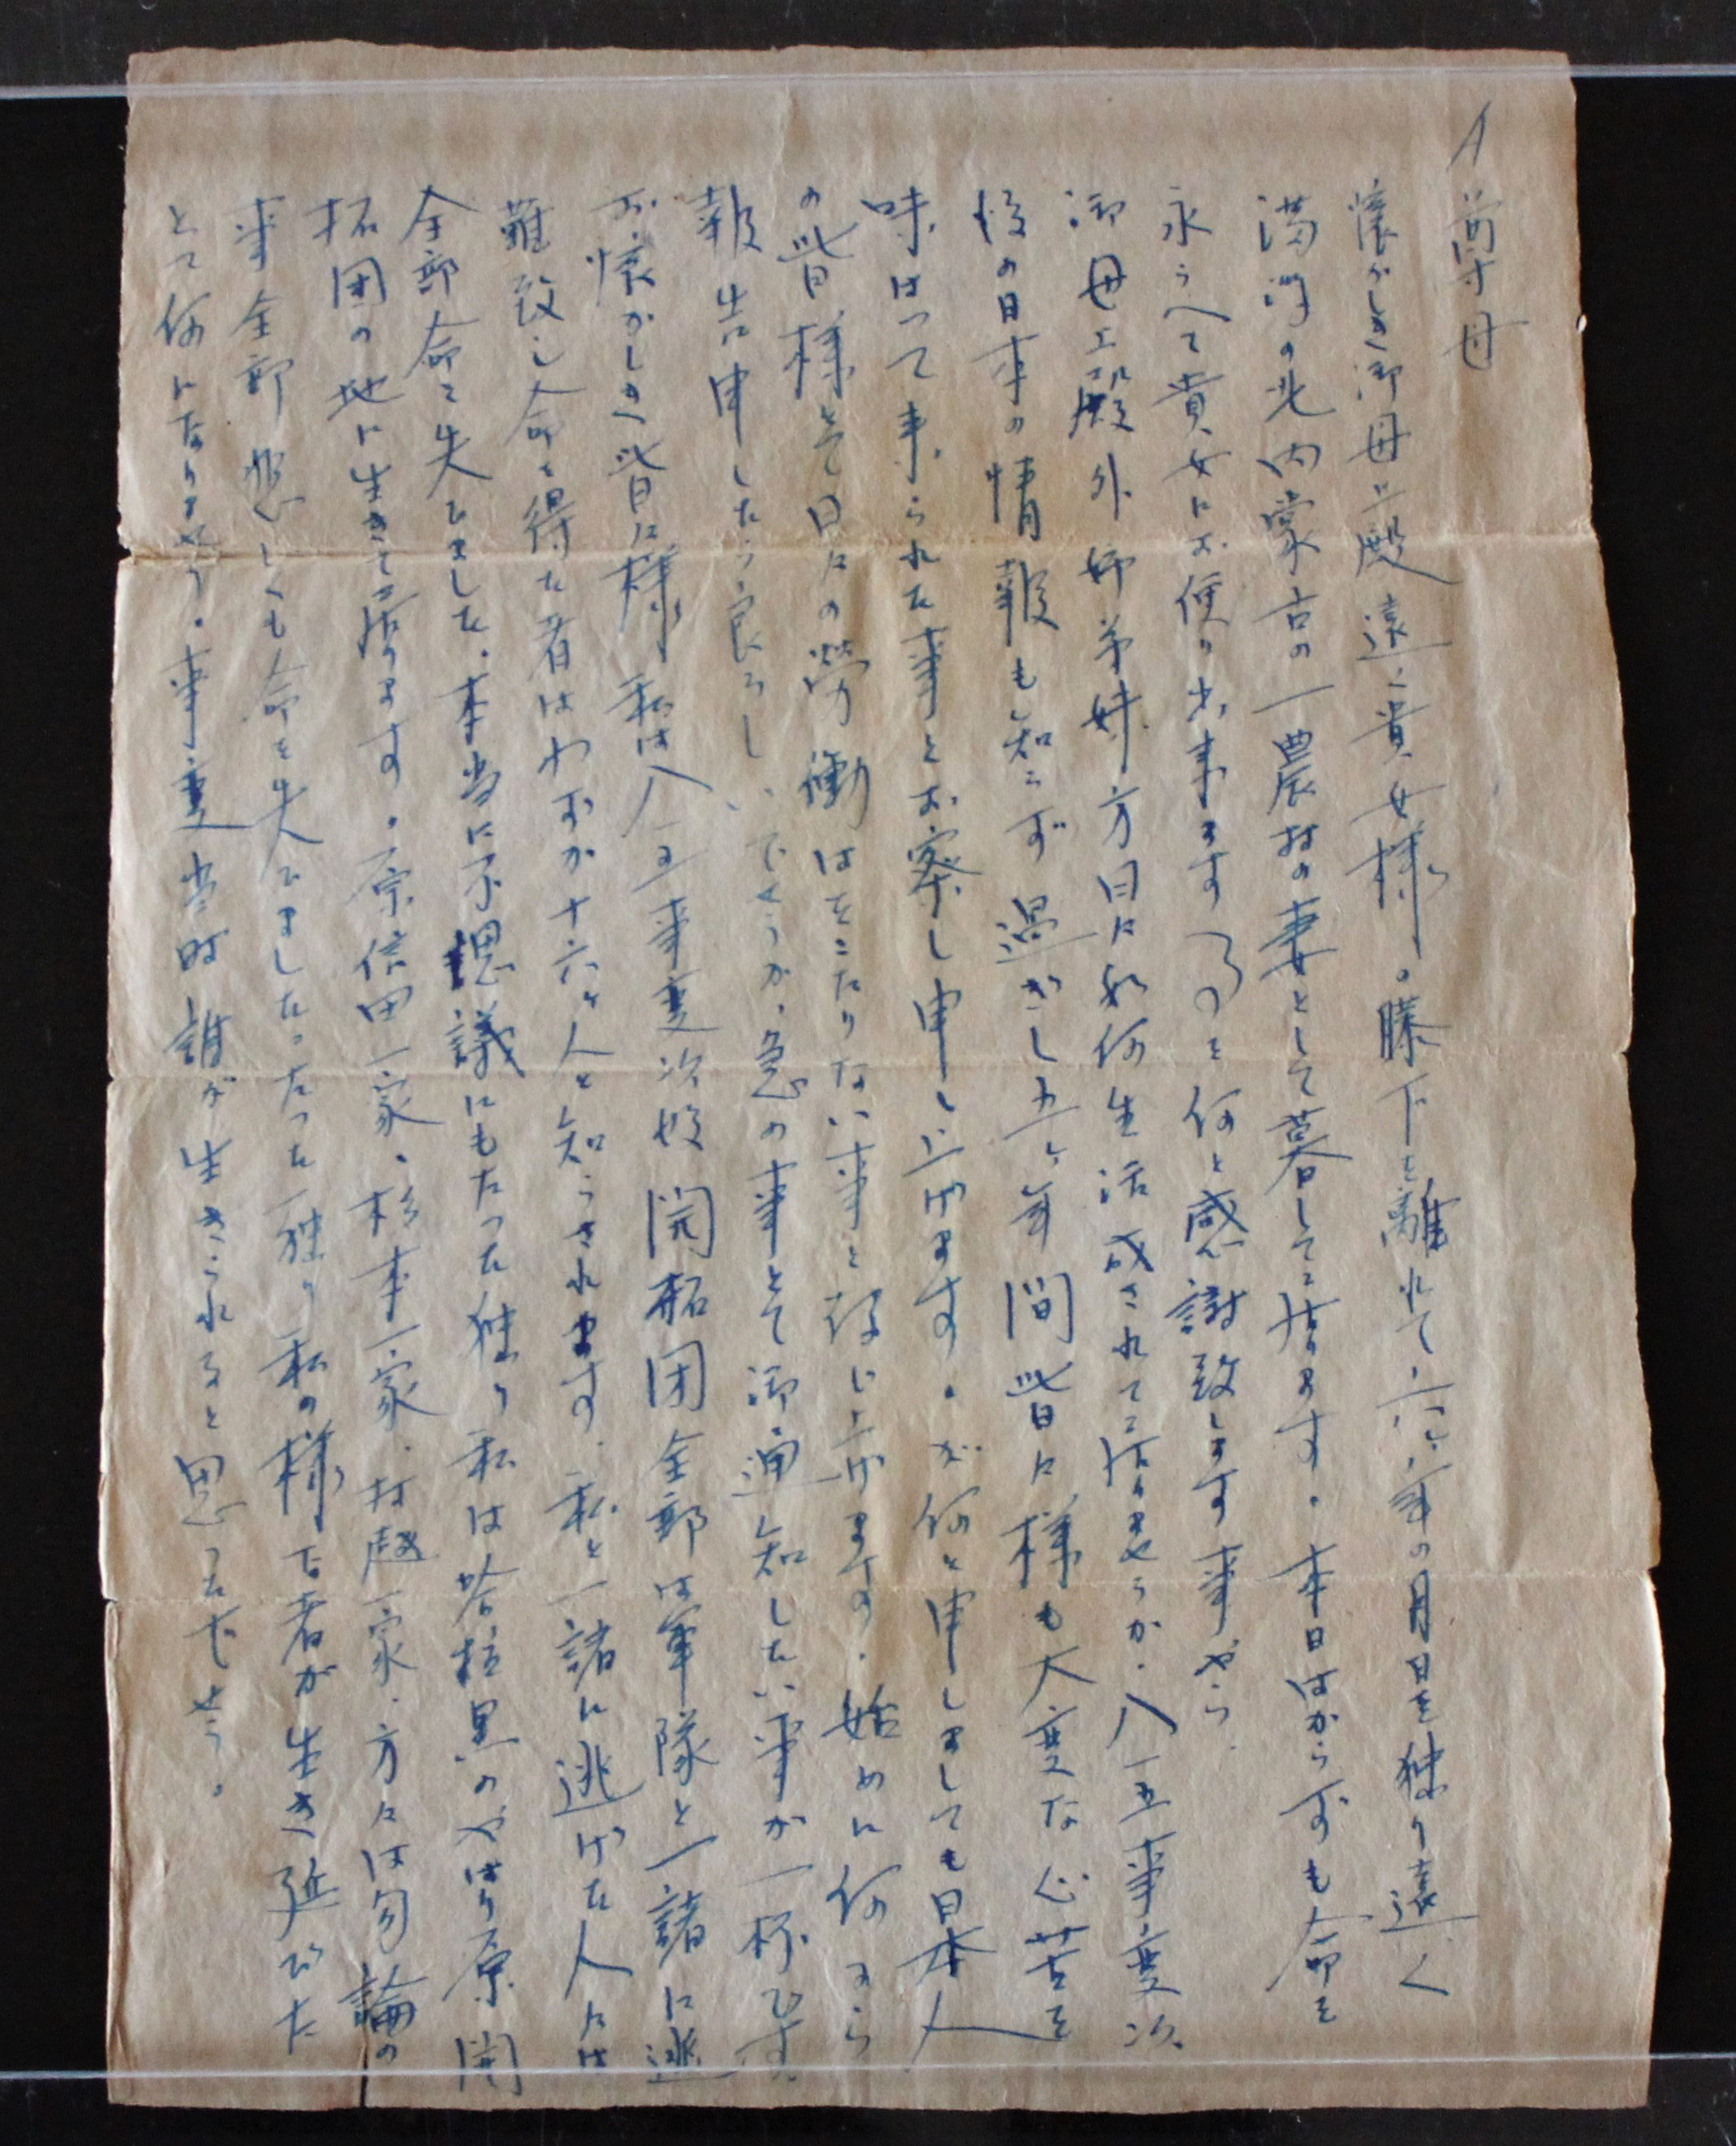 尊母
懐かしき御母上殿遠い貴女様。膝下を離れて六ヶ年の月日を独り遠く
満洲の北内蒙古の一農村の妻として暮して居ります。本日はからずも命を
永らへて貴女にお便り出来ます事を何と感謝致します事やら、
御母上殿外姉弟妹方日々如何生活成されて居りませうか、八一五事変以
後の日本の情報も知らず過ぎし五ヶ年間皆々様も大変な心苦を
味はって来られた事とお察し申し上げます。が何と申しましても日本人
の皆様とて日々の労働はおこたりない事と存じ上げます。始めに何から
報告申したら良ろしいでせうか、急の事とて御通知したい事が一杯です。
お懐かしき皆々様私は八一五事変以後開拓団全部は軍隊と一諸に逃
難致し命を得た者はわずか十六ヶ人と知らされます。私と一諸に逃げた人々は
全部命を失ひました。本当に不思議にもたった独り私は哈拉黒のやはり原開
拓団の地に生きて居ります。原信田一家、杉本一家、村越一家、方々は勿論の
事全部悲しくも命を失ひましたたった独り私の様な者が生き延びた
とて何になりませう。事変当時誰が生きられると思ったでせう。